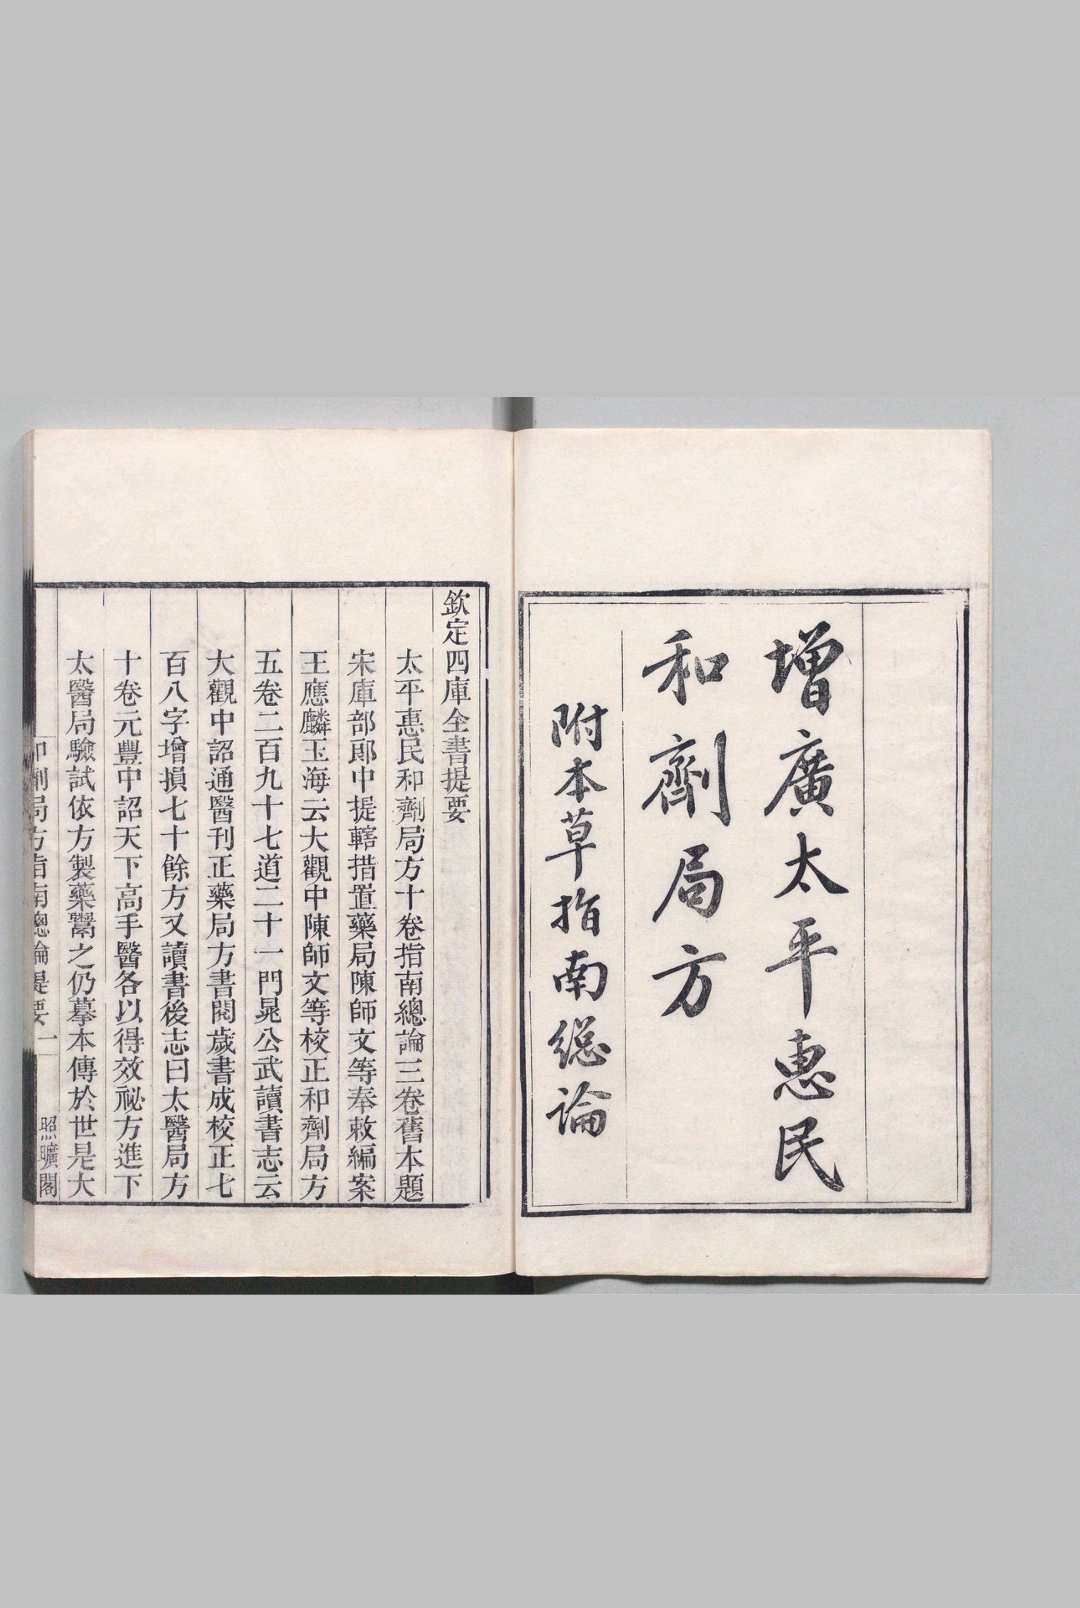 增廣太平惠民
和劑局方
附本草指南総論
欽定四庫全書提要
太平惠民和劑局方十卷指南總論三卷舊本題
宋庫部郎中提轄措置藥局陳師文等奉敕編案
王應麟玉海云大觀中陳師文等校正和劑局方
五卷二百九十七道二十一門晁公武讀書志云
大觀中詔通醫刊正藥局方書閱歲書成校正七
百八字增損七十餘方又讀書後志曰太醫局方
十卷元豐中詔天下高手醫各以得效祕方進下
太醫局驗試依方製藥鬻之仍摹本傳於世是大
和劑局方指南總論提要 一 照曠閣